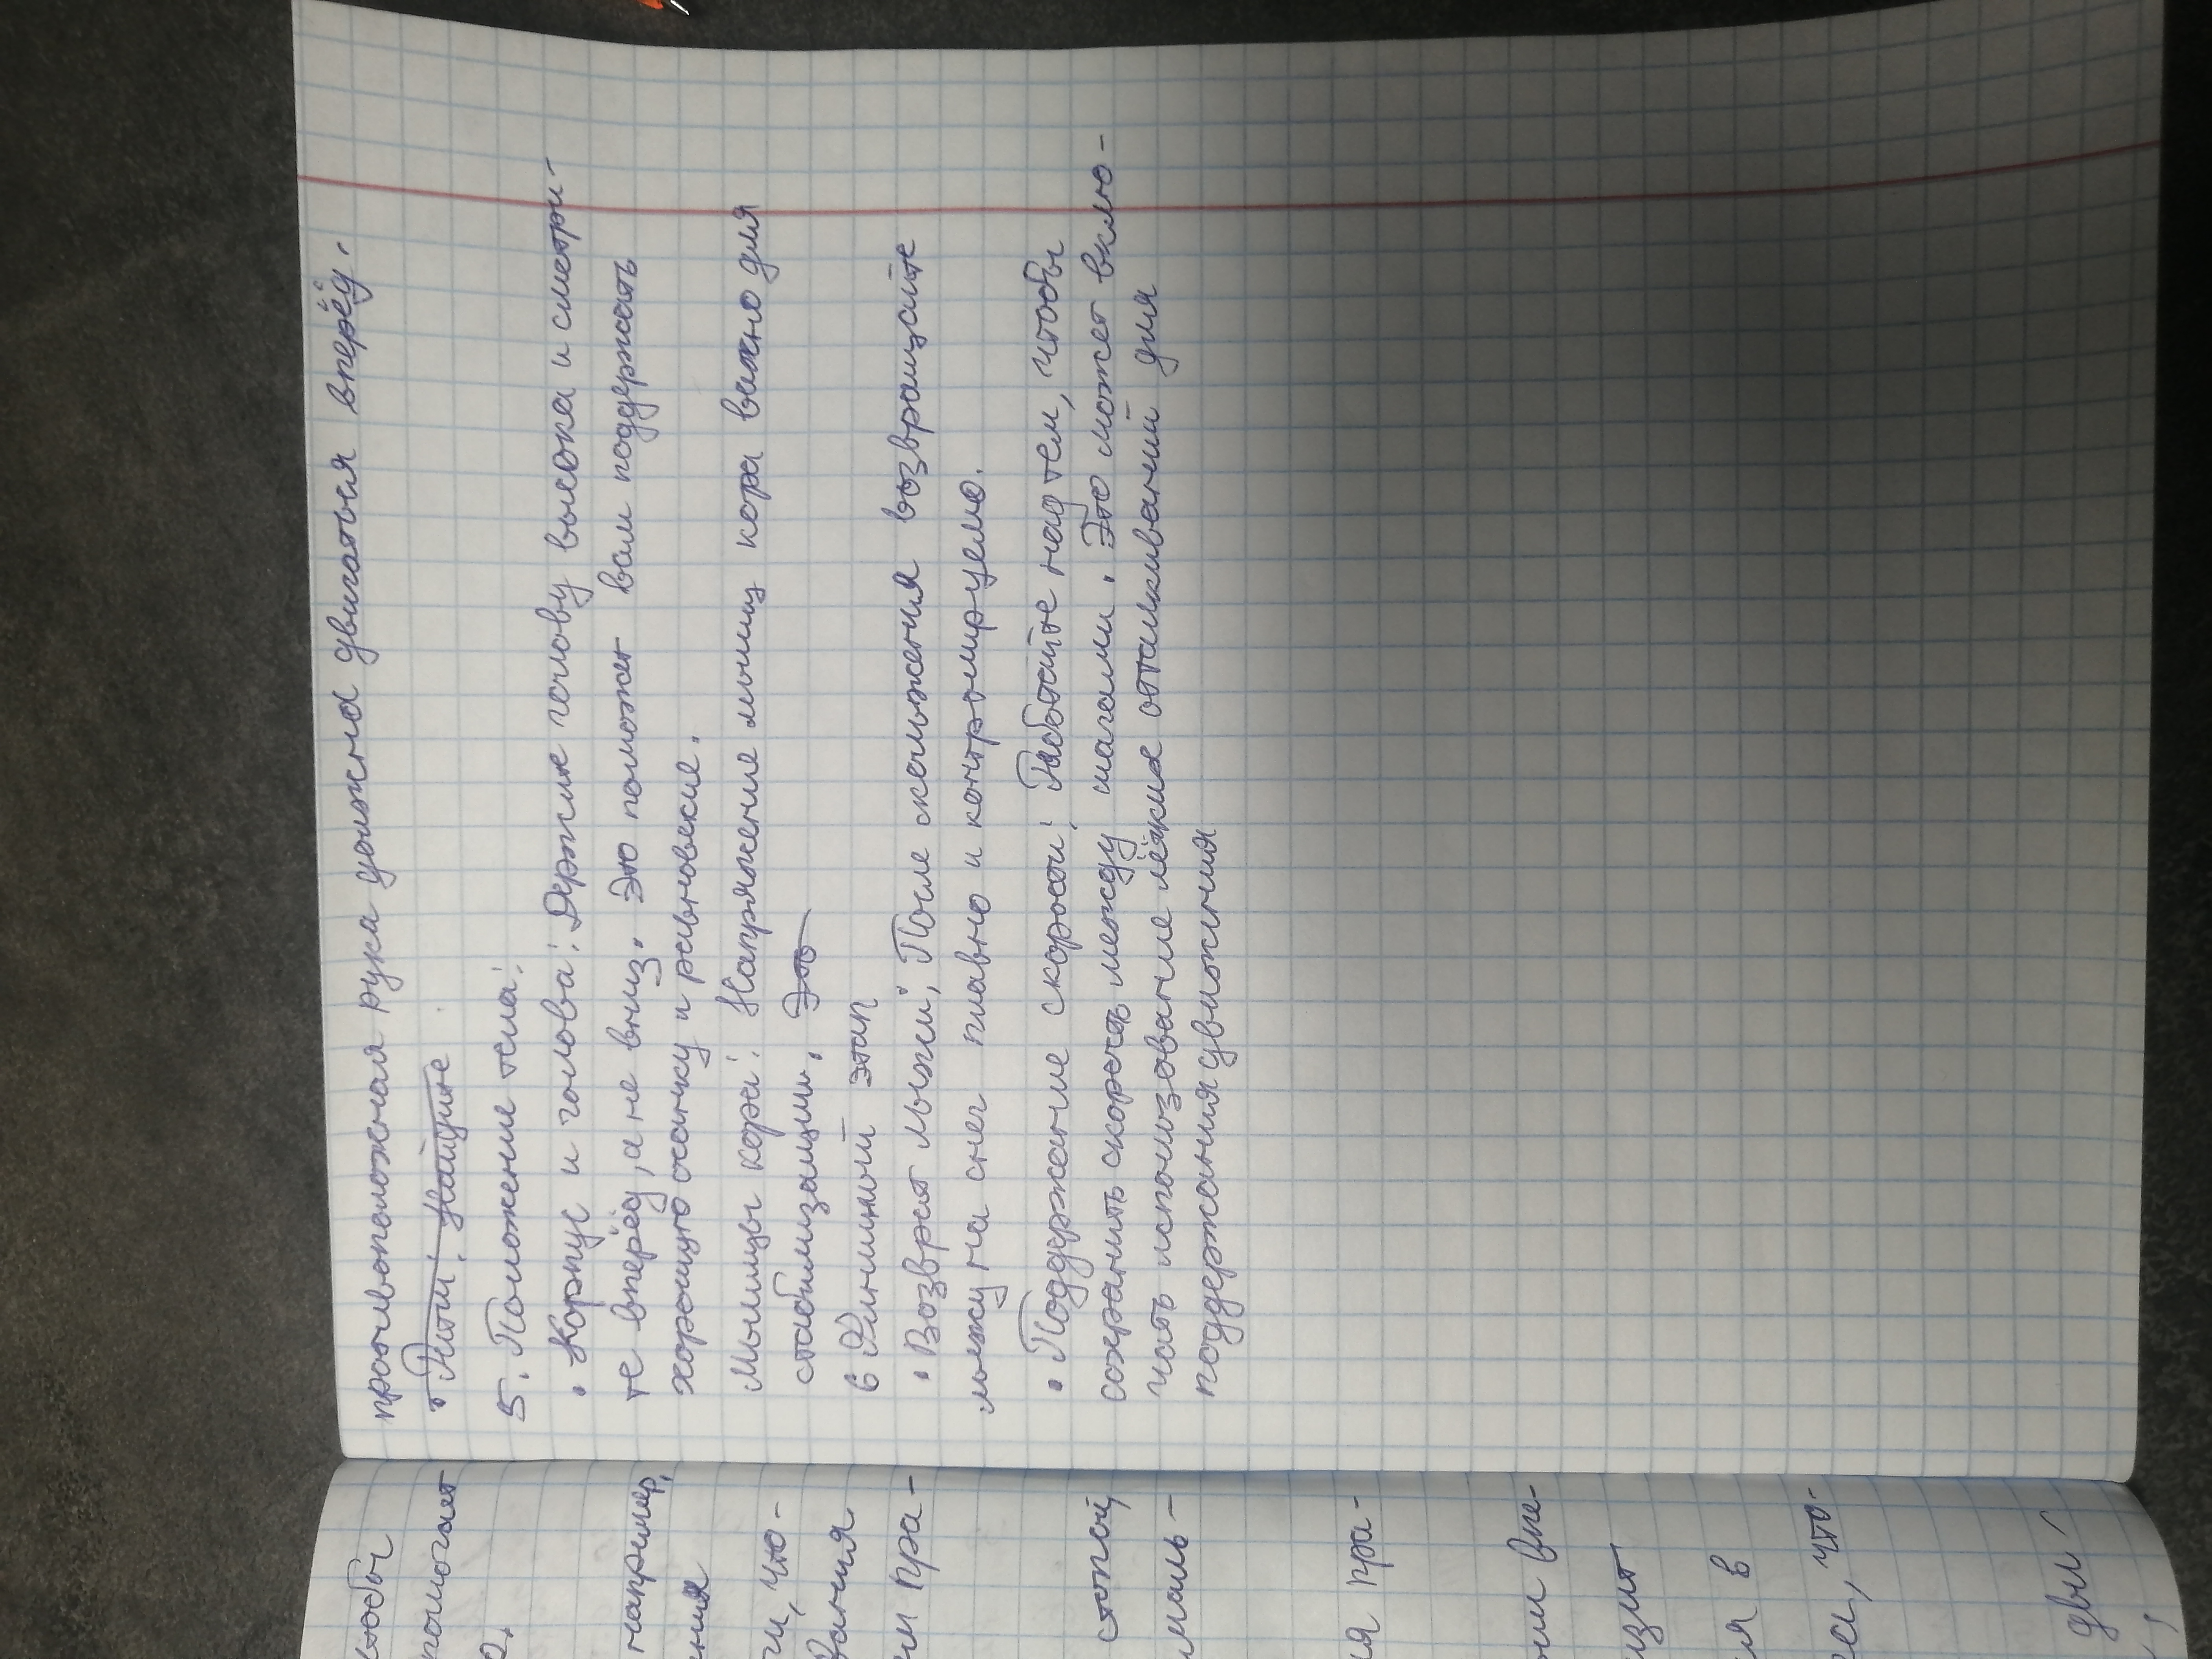 противоположная рука должна двигаться вперёд.
5. Положение тела:
• Корпус и голова: Держите голову высока и смотри-
те вперёд, а не вниз. Это поможет вам поддержать
хорошую осанку и равновесие.
Мышцы кора: Напряжение мышц кора важно для
стабилизации. Это
6 Финишный этап
• Возврат лыжи: После скольжения возвращайте
лыжу на снег плавно и контролируемо.
• Поддержание скорости: Работайте над тем, чтобы
сохранить скорость между шагами. Это может вклю-
чать использование лёгких отталкиваний для
поддержания движения
чтобы
помогает
например,
ния
ги, что-
вания
ни пра-
стопой,
маль-
ия пра-
ом впе-
изит
ия в
са, что-
дви